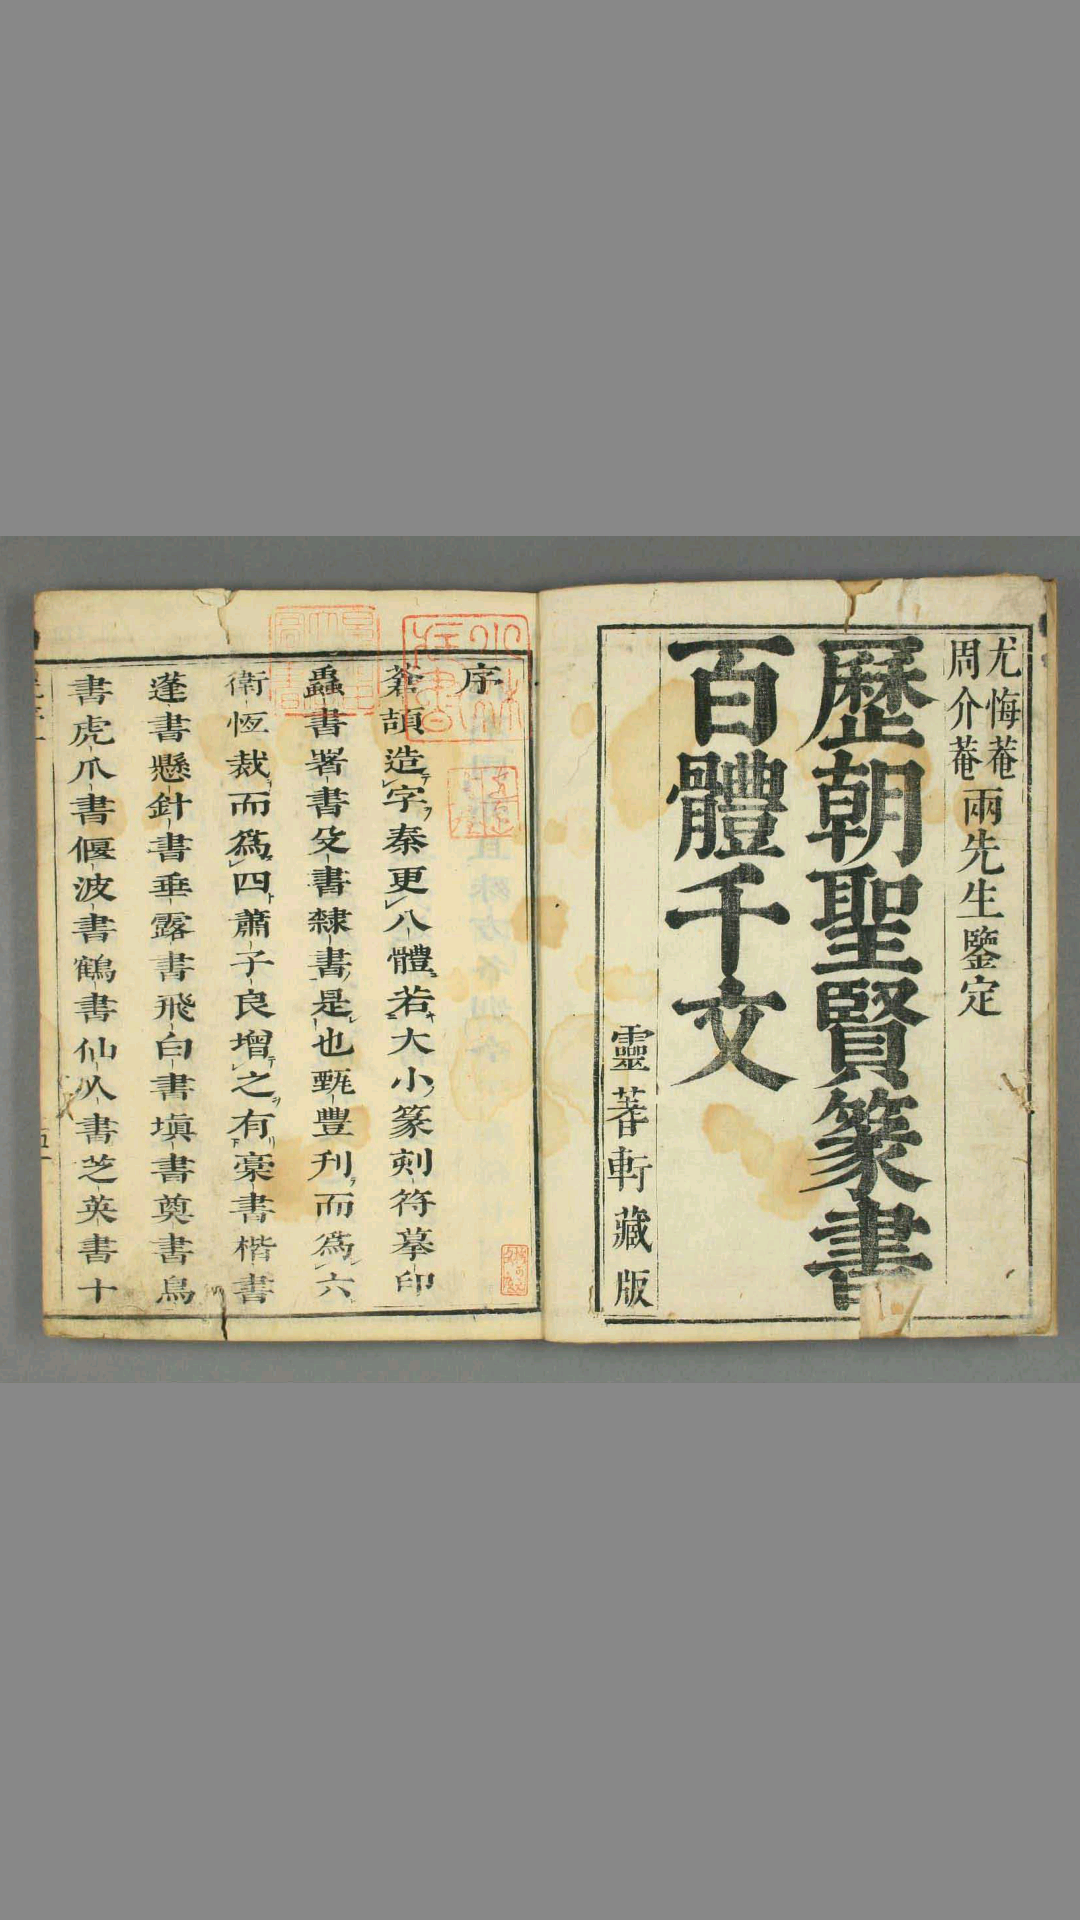 尤悔菴
周介菴
兩先生鑒定
歷朝聖賢篆書
百體千文
靈蓍軒藏版
序
蒼頡造字秦更八體若大小篆刻符摹印
蟲書署書殳書隸書是也甄豐刋而爲六
衛恆裁而爲四蕭子良増之有稾書楷書
蓬書懸針書垂露書飛白書塡書奠書鳥
書虎爪書偃波書鶴書仙人書芝英書十